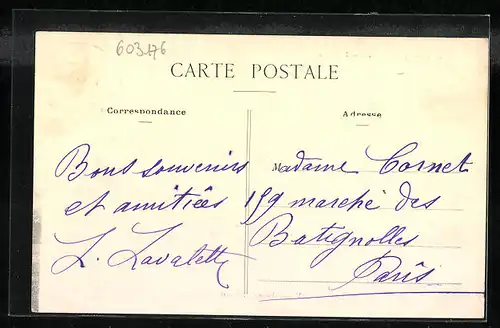 603476
CARTE POSTALE
Correspondance
Adresse
Bons souvenirs
et amitiées
L. Lavalette
Madame Cornet
159 marché des
Batignolles
Paris